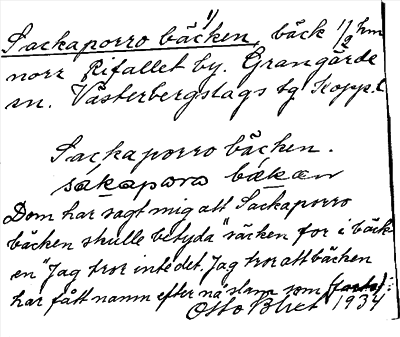 1)
Sackaporro bäcken, bäck 1/2 km
norr Rifallet by. Grangärde
sn. Västerbergslags tg Kopp.l
Sackaporro bäcken.
sakaporo bäkæn
Dom har sagt mig att Sackaporro
bäcken skulle betyda "säcken for i bäck
en" Jag tror inte det. Jag tror att bäcken
har fått namn efter nå'
som
Otto Blixt 1934